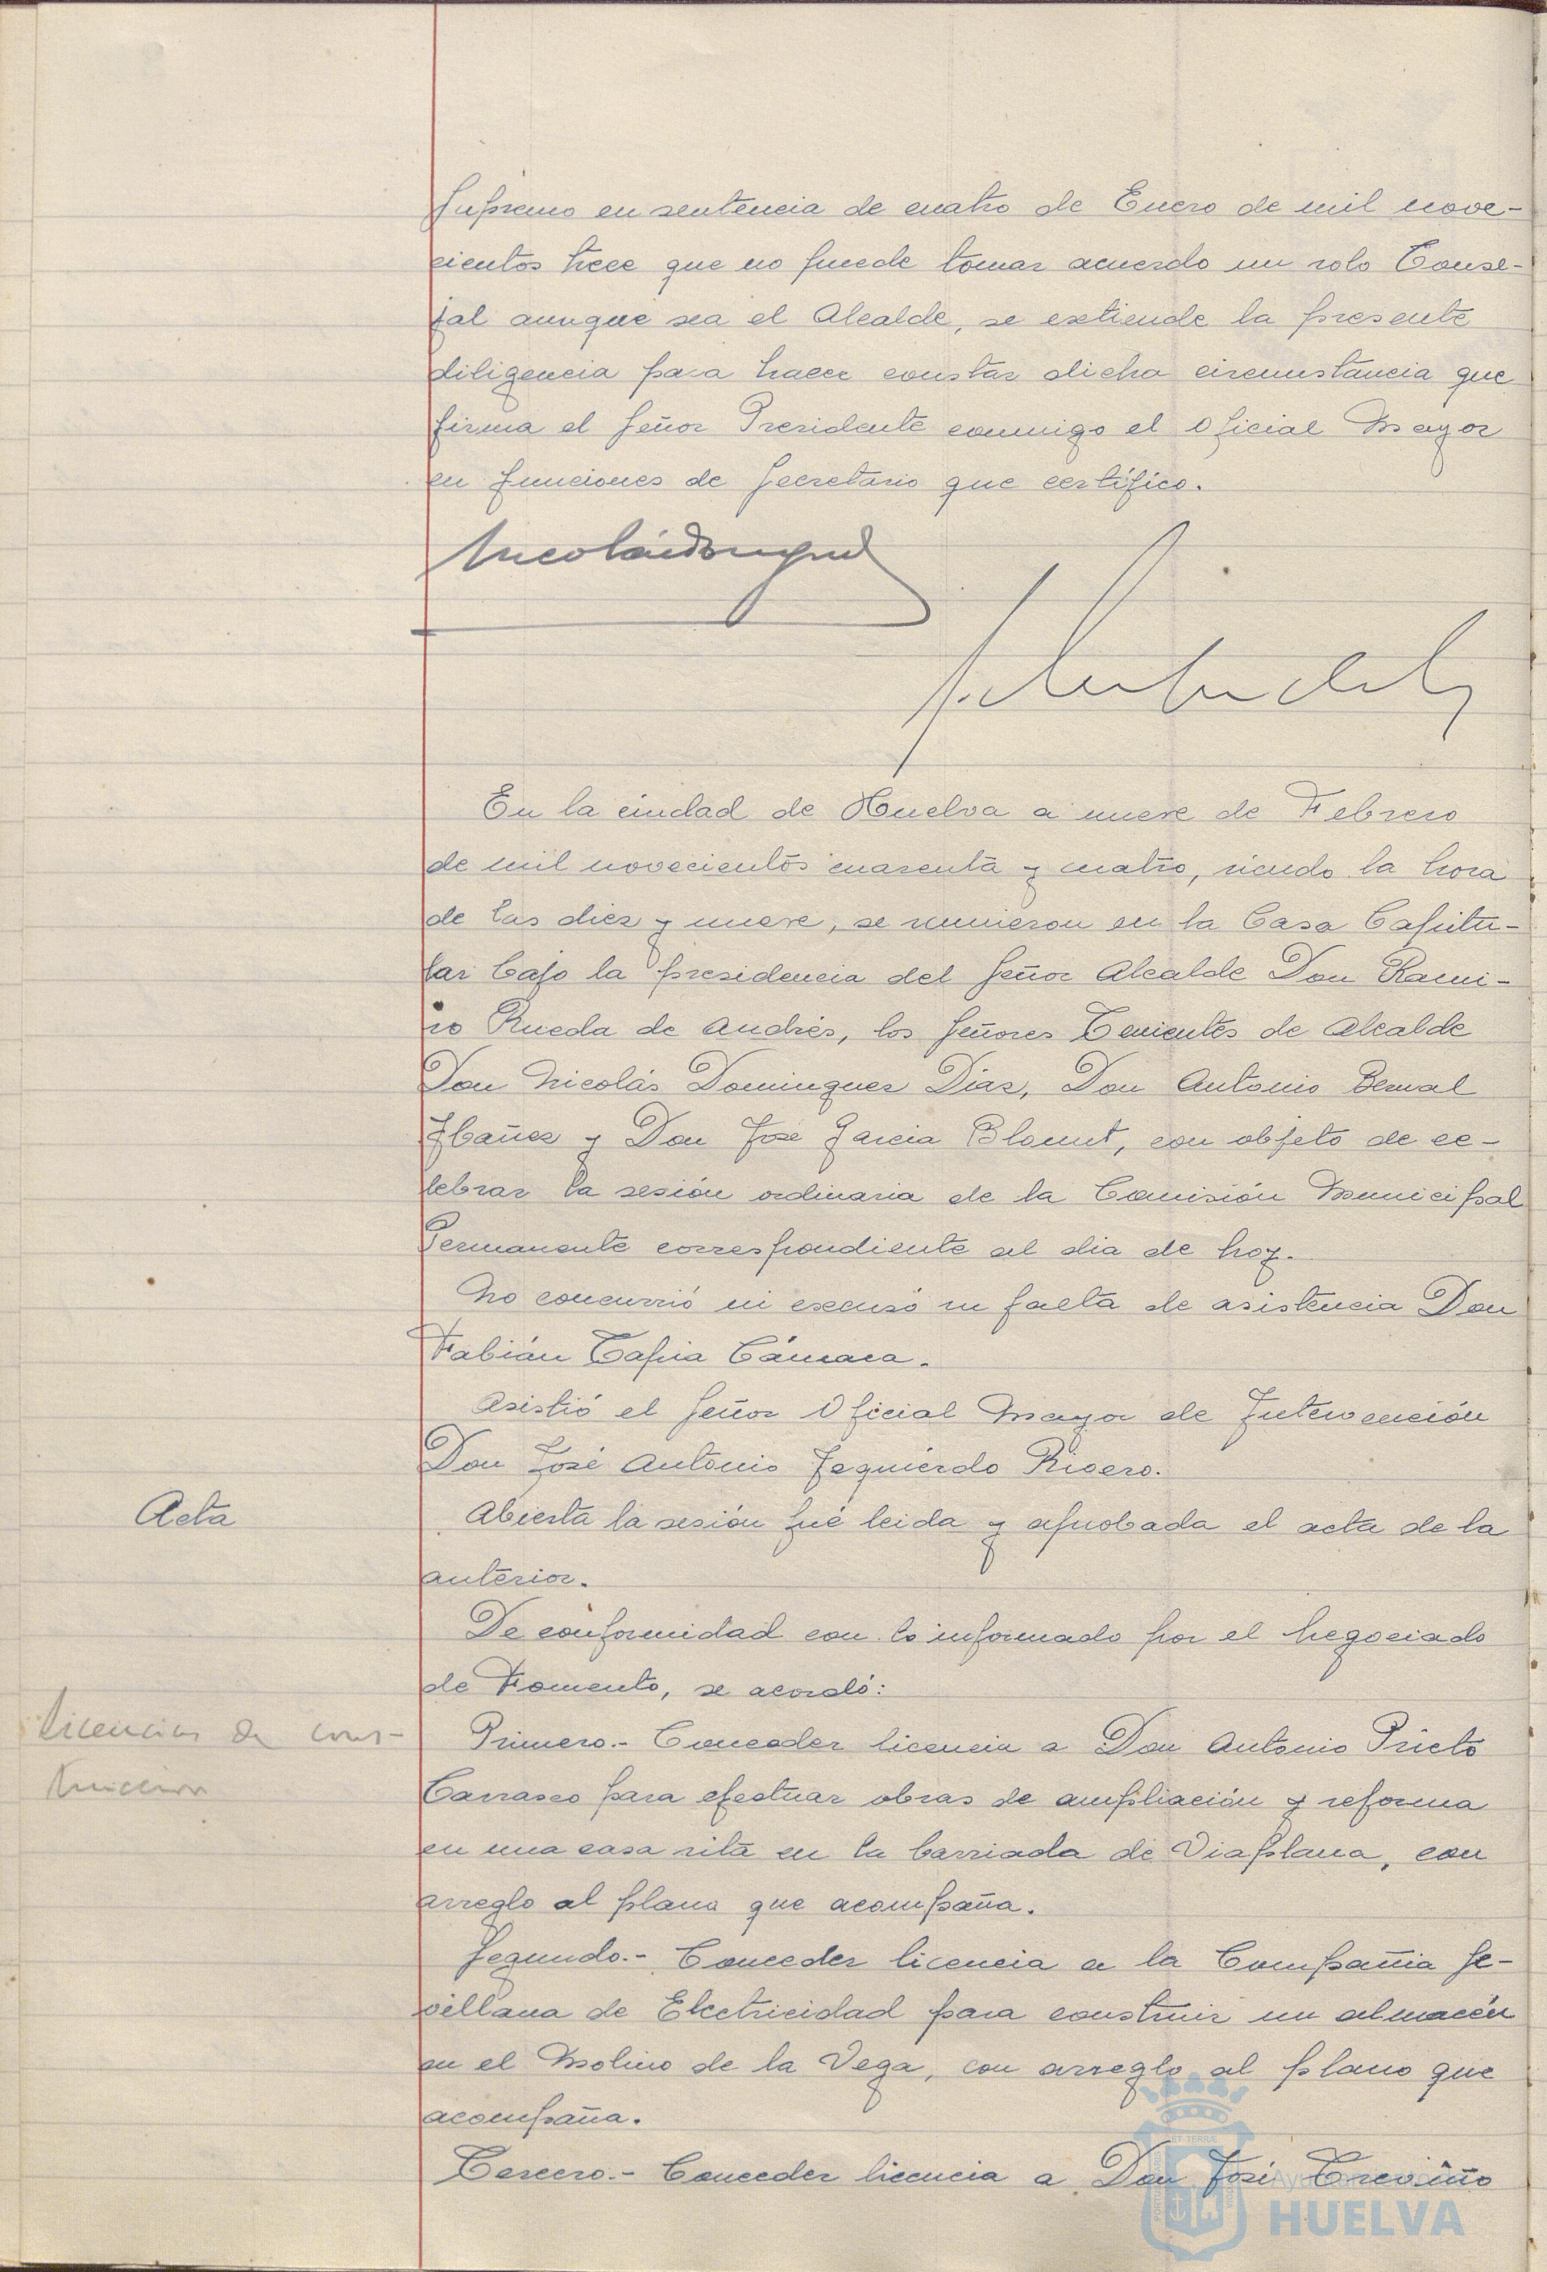 Supremo en sentencia de cuatro de Enero de mil nove-
cientos trece que no puede tomar acuerdo un solo Conse-
jal aunque sea el Alcalde, se extiende la presente
diligencia para hacer constar dicha circunstancia que
firma el Señor Presidente conmigo el Oficial Mayor
en funciones de Secretario que certifico.
En la ciudad de Huelva a nueve de Febrero
de mil novecientos cuarenta y cuatro, siendo la hora
de las diez y nueve, se reunieron en la Casa Capitu-
lar bajo la presidencia del Señor Alcalde Don Rami-
ro Rueda de Andrés, los Señores Tenientes de Alcalde
Don Nicolás Dominguez Díaz, Don Antonio Bernal
Ibañez y Don José Garcia Blomut, con objeto de ce-
lebrar la sesión ordinaria de la Comisión Municipal
Permanente correspondiente al dia de hoy.
No concurrió ni escusó su falta de asistencia Don
Fabián Tapia Cámara.
Asistió el Señor Oficial Mayor de Intervención
Don José Antonio Izquierdo Rivero.
Acta
Abierta la sesión fué leida y aprobada el acta de la
anterior.
De conformidad con lo informado por el Negociado
de Fomento, se acordó:
Licencias de cons-
trucción
Primero.- Conceder licencia a Don Antonio Prieto
Carrasco para efectuar obras de ampliación y reforma
en una casa sita en la barriada de Viaplana, con
arreglo al plano que acompaña.
Segundo.- Conceder licencia a la Compañia Se-
villana de Electricidad para construir un almacén
en el Molino de la Vega, con arreglo al plano que
acompaña.
Tercero.- Conceder licencia a Don José Treviño
Ayuntamiento de
HUELVA